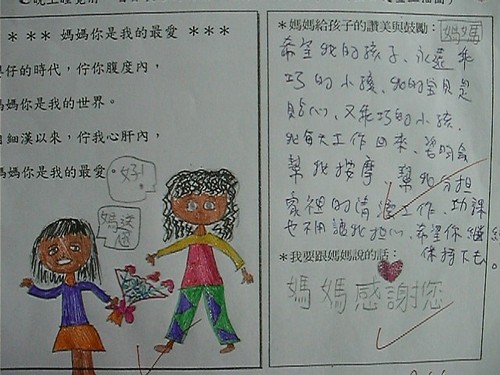 ＊ ＊＊ 媽媽你是我的最愛 ＊＊＊
仔的時代，佇你腹度內，
媽你是我的世界。
細漢以來，佇我心肝內，
媽你是我的最愛
好!
媽送
＊媽媽給孩子的讚美與鼓勵： 媽媽
希望我的孩子、永遠乖
巧的小孩、我的宝貝是
貼心、又乖巧的小孩、
我每天工作回來、習
幫我按摩 幫我分担
家裡的清 工作、功課
也不用讓我担心、希望你繼続
保持下去。
＊我要跟媽媽說的話：
媽媽感謝您